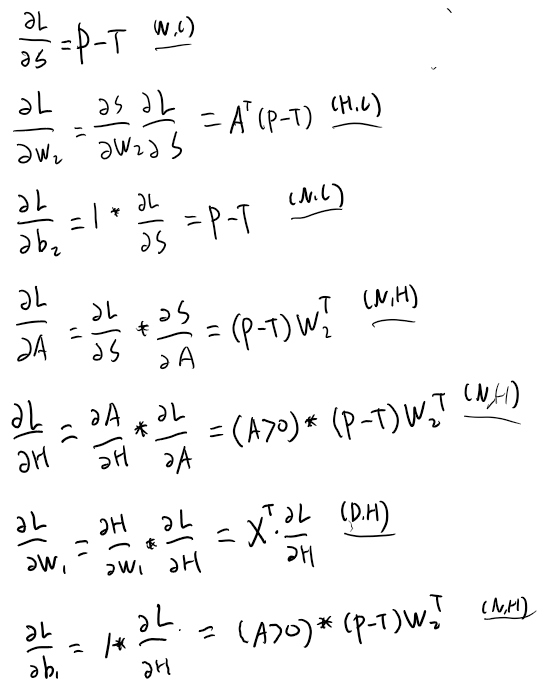 ∂L/∂S = P-T (N,C)
∂L/∂W₂ = ∂S/∂W₂ ∂L/∂S = Aᵀ(P-T) (H,C)
∂L/∂b₂ = 1 * ∂L/∂S = P-T (N,C)
∂L/∂A = ∂L/∂S * ∂S/∂A = (P-T)W₂ᵀ (N,H)
∂L/∂H = ∂A/∂H * ∂L/∂A = (A>0) * (P-T)W₂ᵀ (N,H)
∂L/∂W₁ = ∂H/∂W₁ * ∂L/∂H = Xᵀ·∂L/∂H (D,H)
∂L/∂b₁ = 1 * ∂L/∂H = (A>0) * (P-T)W₂ᵀ (N,H)